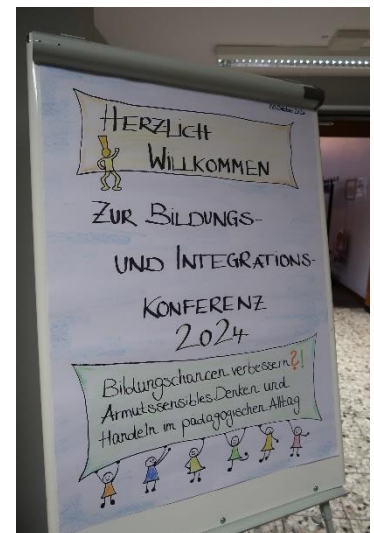 HERZLICH
WILLKOMMEN
ZUR BILDUNGS-
UND INTEGRATIONS-
KONFERENZ
2024
Bildungschancen verbessern?!
Armutssensibles Denken und
Handeln im pädagogischen Alltag